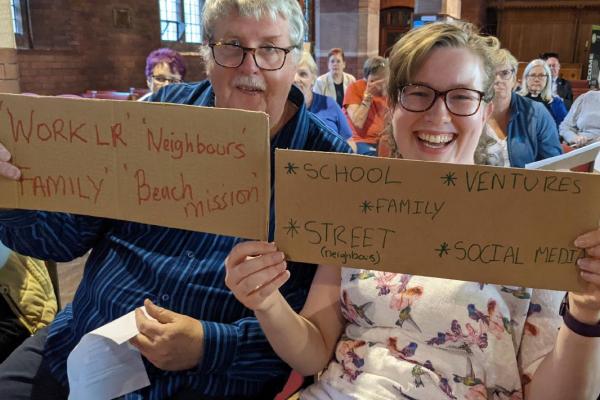 'WORK LR' 'Neighbours'
FAMILY' 'Beach
mission'
*SCHOOL *VENTURES
*FAMILY
*STREET
(neighbours)
*SOCIAL MEDI